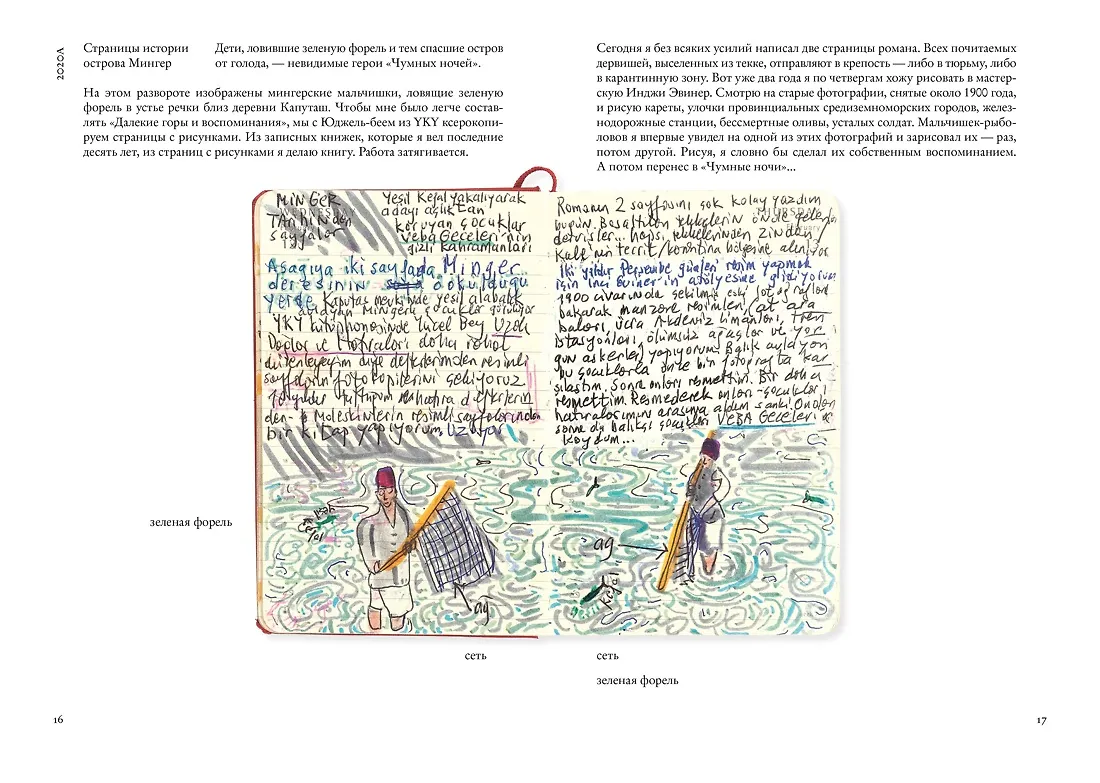 2020Л
Страницы истории
острова Мингер
Дети, ловившие зеленую форель и тем спасшие остров
от голода, — невидимые герои «Чумных ночей».
На этом развороте изображены мингерские мальчишки, ловящие зеленую
форель в устье речки близ деревни Капуташ. Чтобы мне было легче состав-
лять «Далекие горы и воспоминания», мы с Юджель-беем из YKY ксерокопи-
руем страницы с рисунками. Из записных книжек, которые я вел последние
десять лет, из страниц с рисунками я делаю книгу. Работа затягивается.
Сегодня я без всяких усилий написал две страницы романа. Всех почитаемых
дервишей, выселенных из текке, отправляют в крепость — либо в тюрьму, либо
в карантинную зону. Вот уже два года я по четвергам хожу рисовать в мастер-
скую Инджи Эвинер. Смотрю на старые фотографии, снятые около 1900 года,
и рисую кареты, улочки провинциальных средиземноморских городов, желез-
нодорожные станции, бессмертные оливы, усталых солдат. Мальчишек-рыбо-
ловов я впервые увидел на одной из этих фотографий и зарисовал их — раз,
потом другой. Рисуя, я словно бы сделал их собственным воспоминанием.
А потом перенес в «Чумные ночи»...
MINGER
WEDNESDAY
TARihiNden
sayfalar
Yeşil Kefal yakalıyarak
adayı açlıktan
koruyan çocuklar
Veba Geceleri'nin
gizli kahramanları
Aşağıya iki sayfada Minger
deresinin döküldüğü
yerde Kaputaş mevkinde yeşil alabalık
avlayan Mingerli çocuklar görülüyor
YKY kütüphanesinde Yücel Bey Uzak
Dağlar ve Hatıraları daha rahat
düzenleyeyim diye defterlerimden resimli
sayfaların fotokopilerini çekiyoruz
on yıldır tuttuğum defterlerin
den Moleskinlerin resimli sayfalarından
bir kitap yapıyorum. Uzuyor
Romanın 2 sayfasını çok kolay yazdım
THURSDAY
bugün. tekkelerin önde gelen
dervişler... hepsi, tekkelerinden zindan/
Kale'nin karantina bölgesine alınıyor
İki yıldır Perşembe günleri resim yapmak
için İnci Eviner'in atölyesine gidiyorum
1900 civarında çekilmiş eski fotoğraflara
bakarak manzara resimleri, (at ara
baları, ücra Akdeniz limanları, tren
istasyonları, ölümsüz ağaçlar ve yor
gun askerler) yapıyorum. Balık avlayan
bu çocuklarla önce bir fotoğrafta kar
şılaştım. Sonra onları resmettim. Bir daha
resmettim. Resmederek onları -çocukları
hatıralarımın arasına aldım sanki. Ondan
sonra da balıkçı çocukları VEBA GECELERİ'ne
koydum...
yeşil
kefal
ağ
ağ
kefal
зеленая форель
сеть
сеть
зеленая форель
16
17